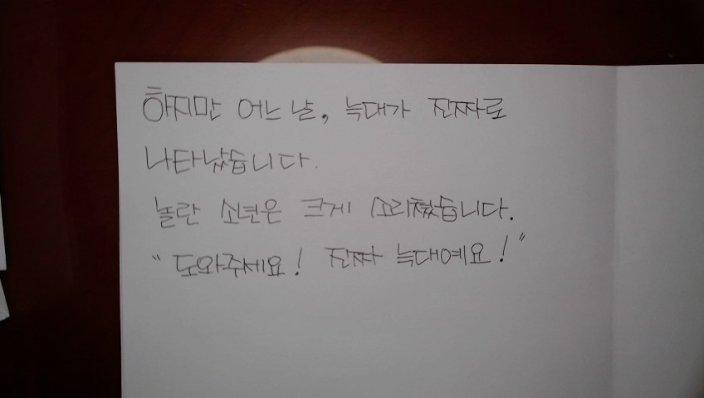 하지만 어느 날, 늑대가 진짜로
나타났습니다.
놀란 소년은 크게 소리쳤습니다.
"도와주세요! 진짜 늑대예요!"